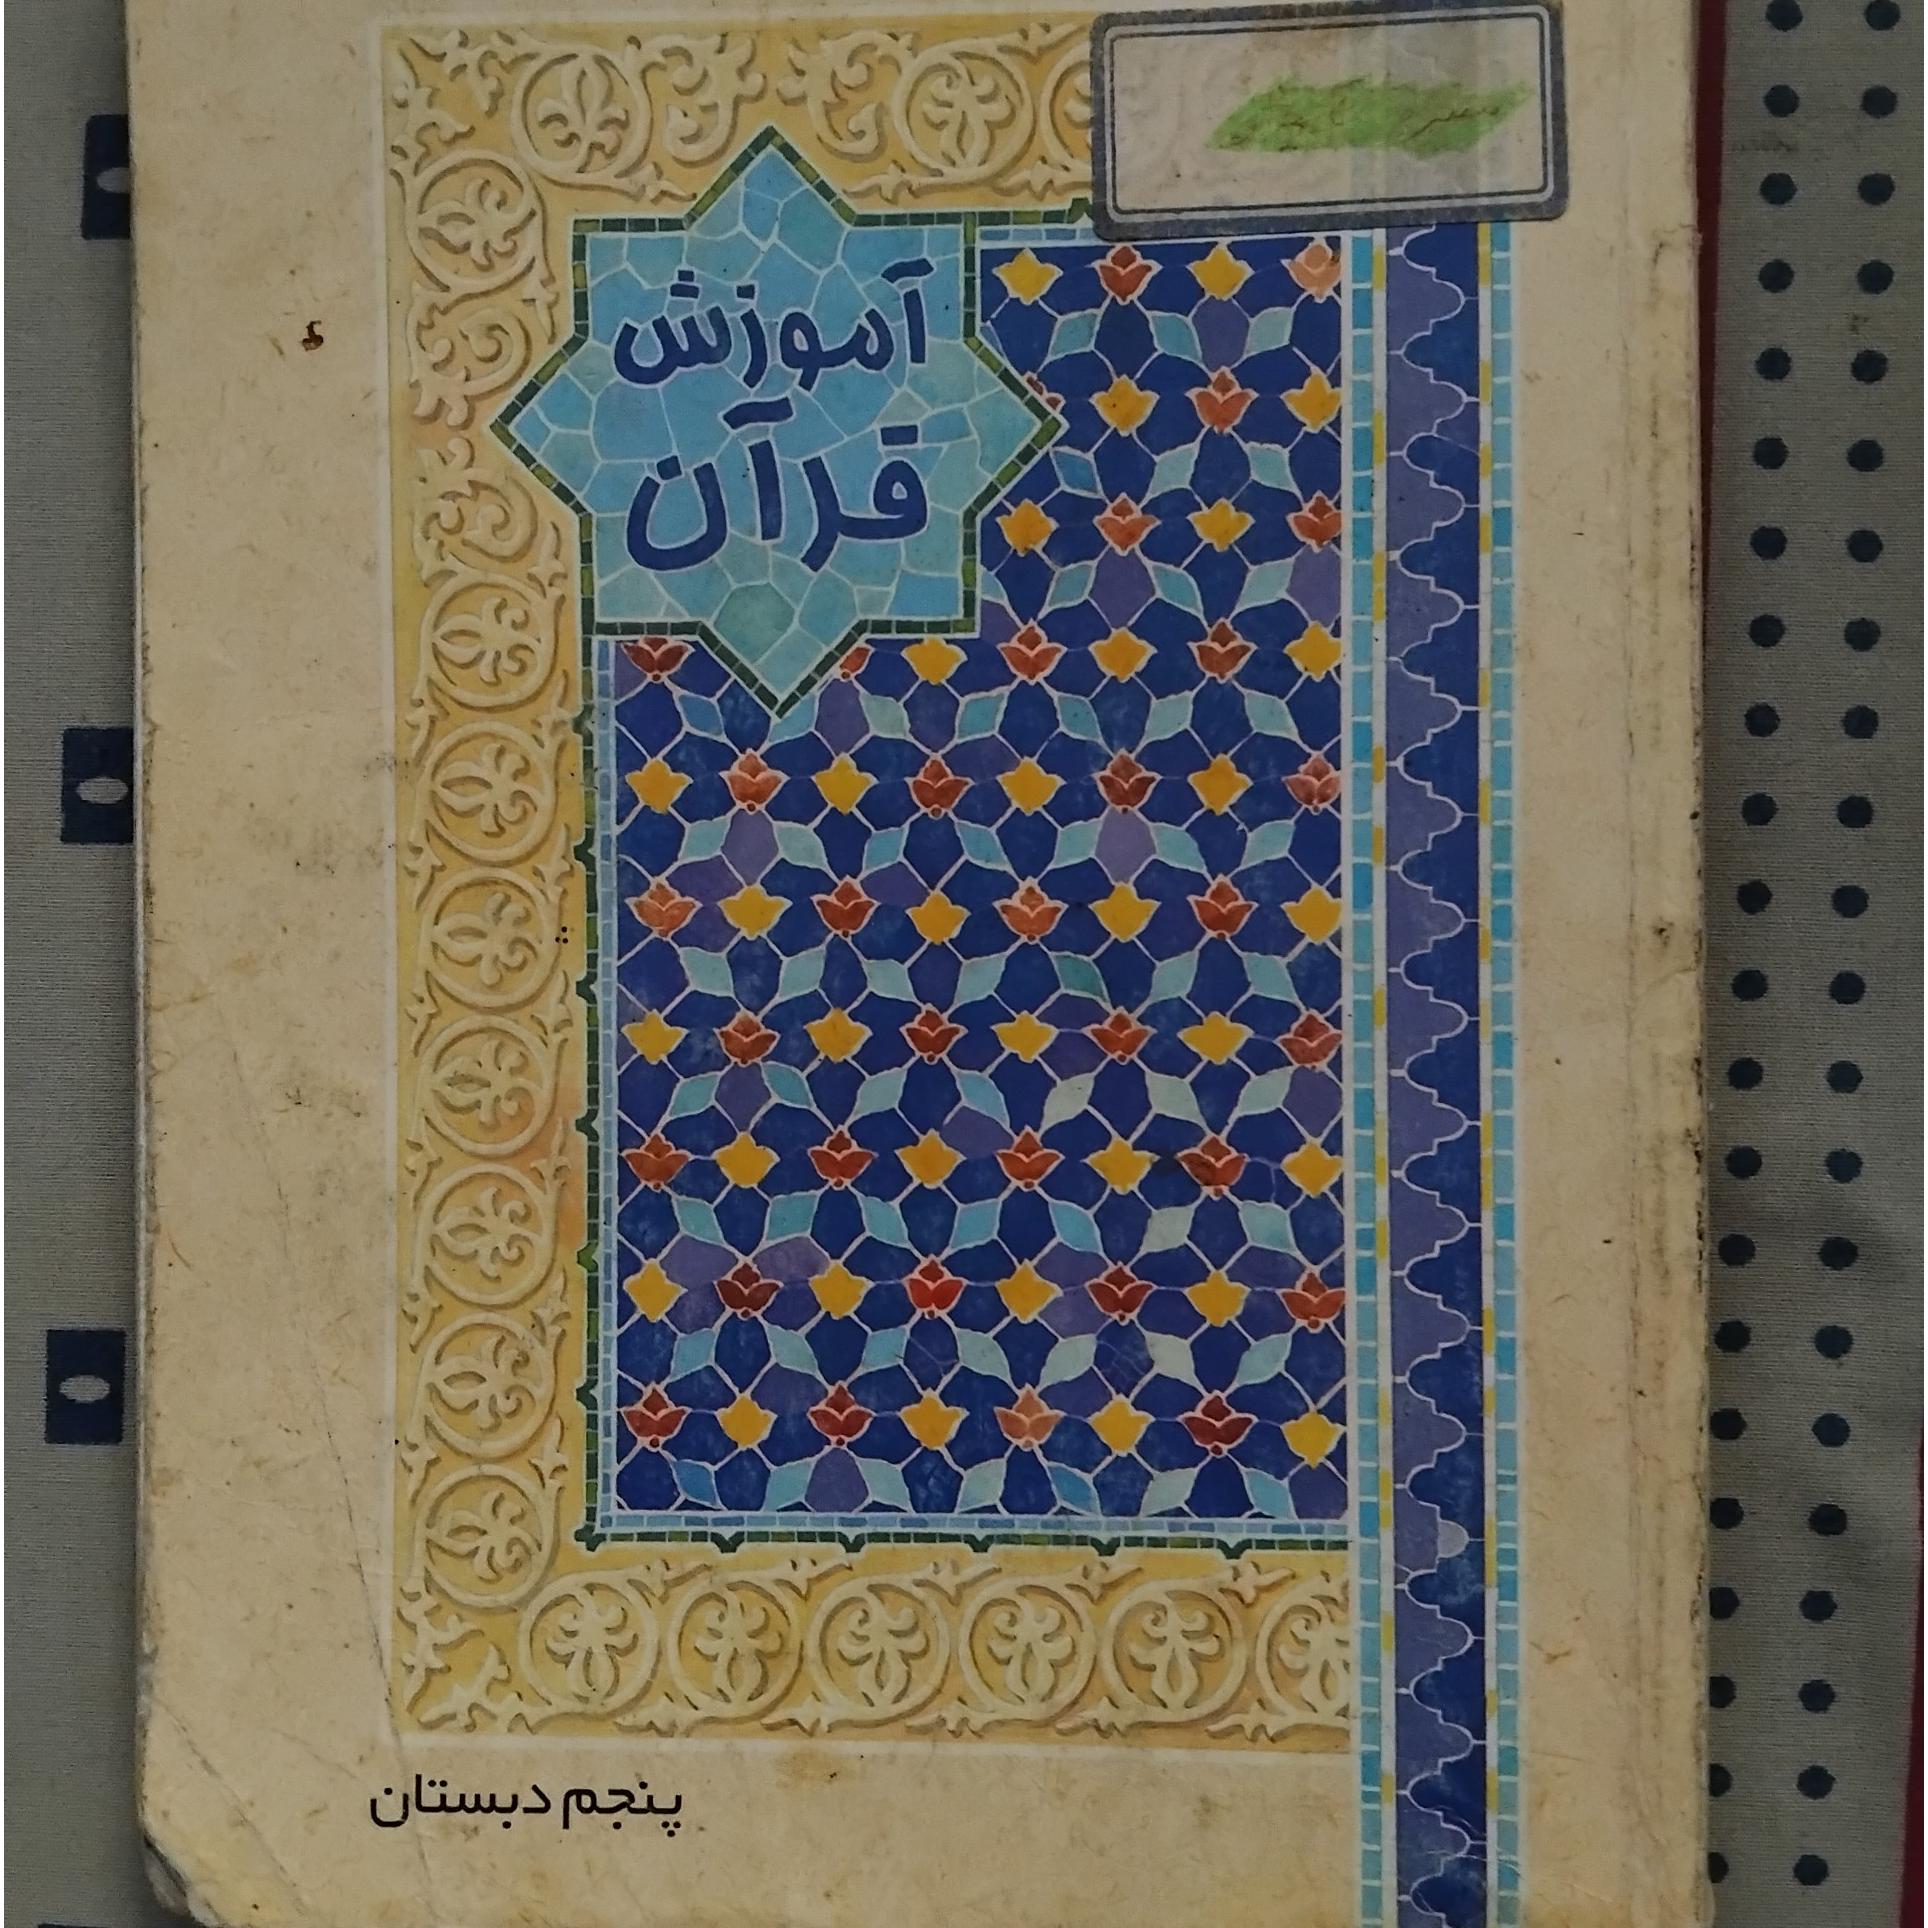 آموزش
قرآن
پنجم دبستان